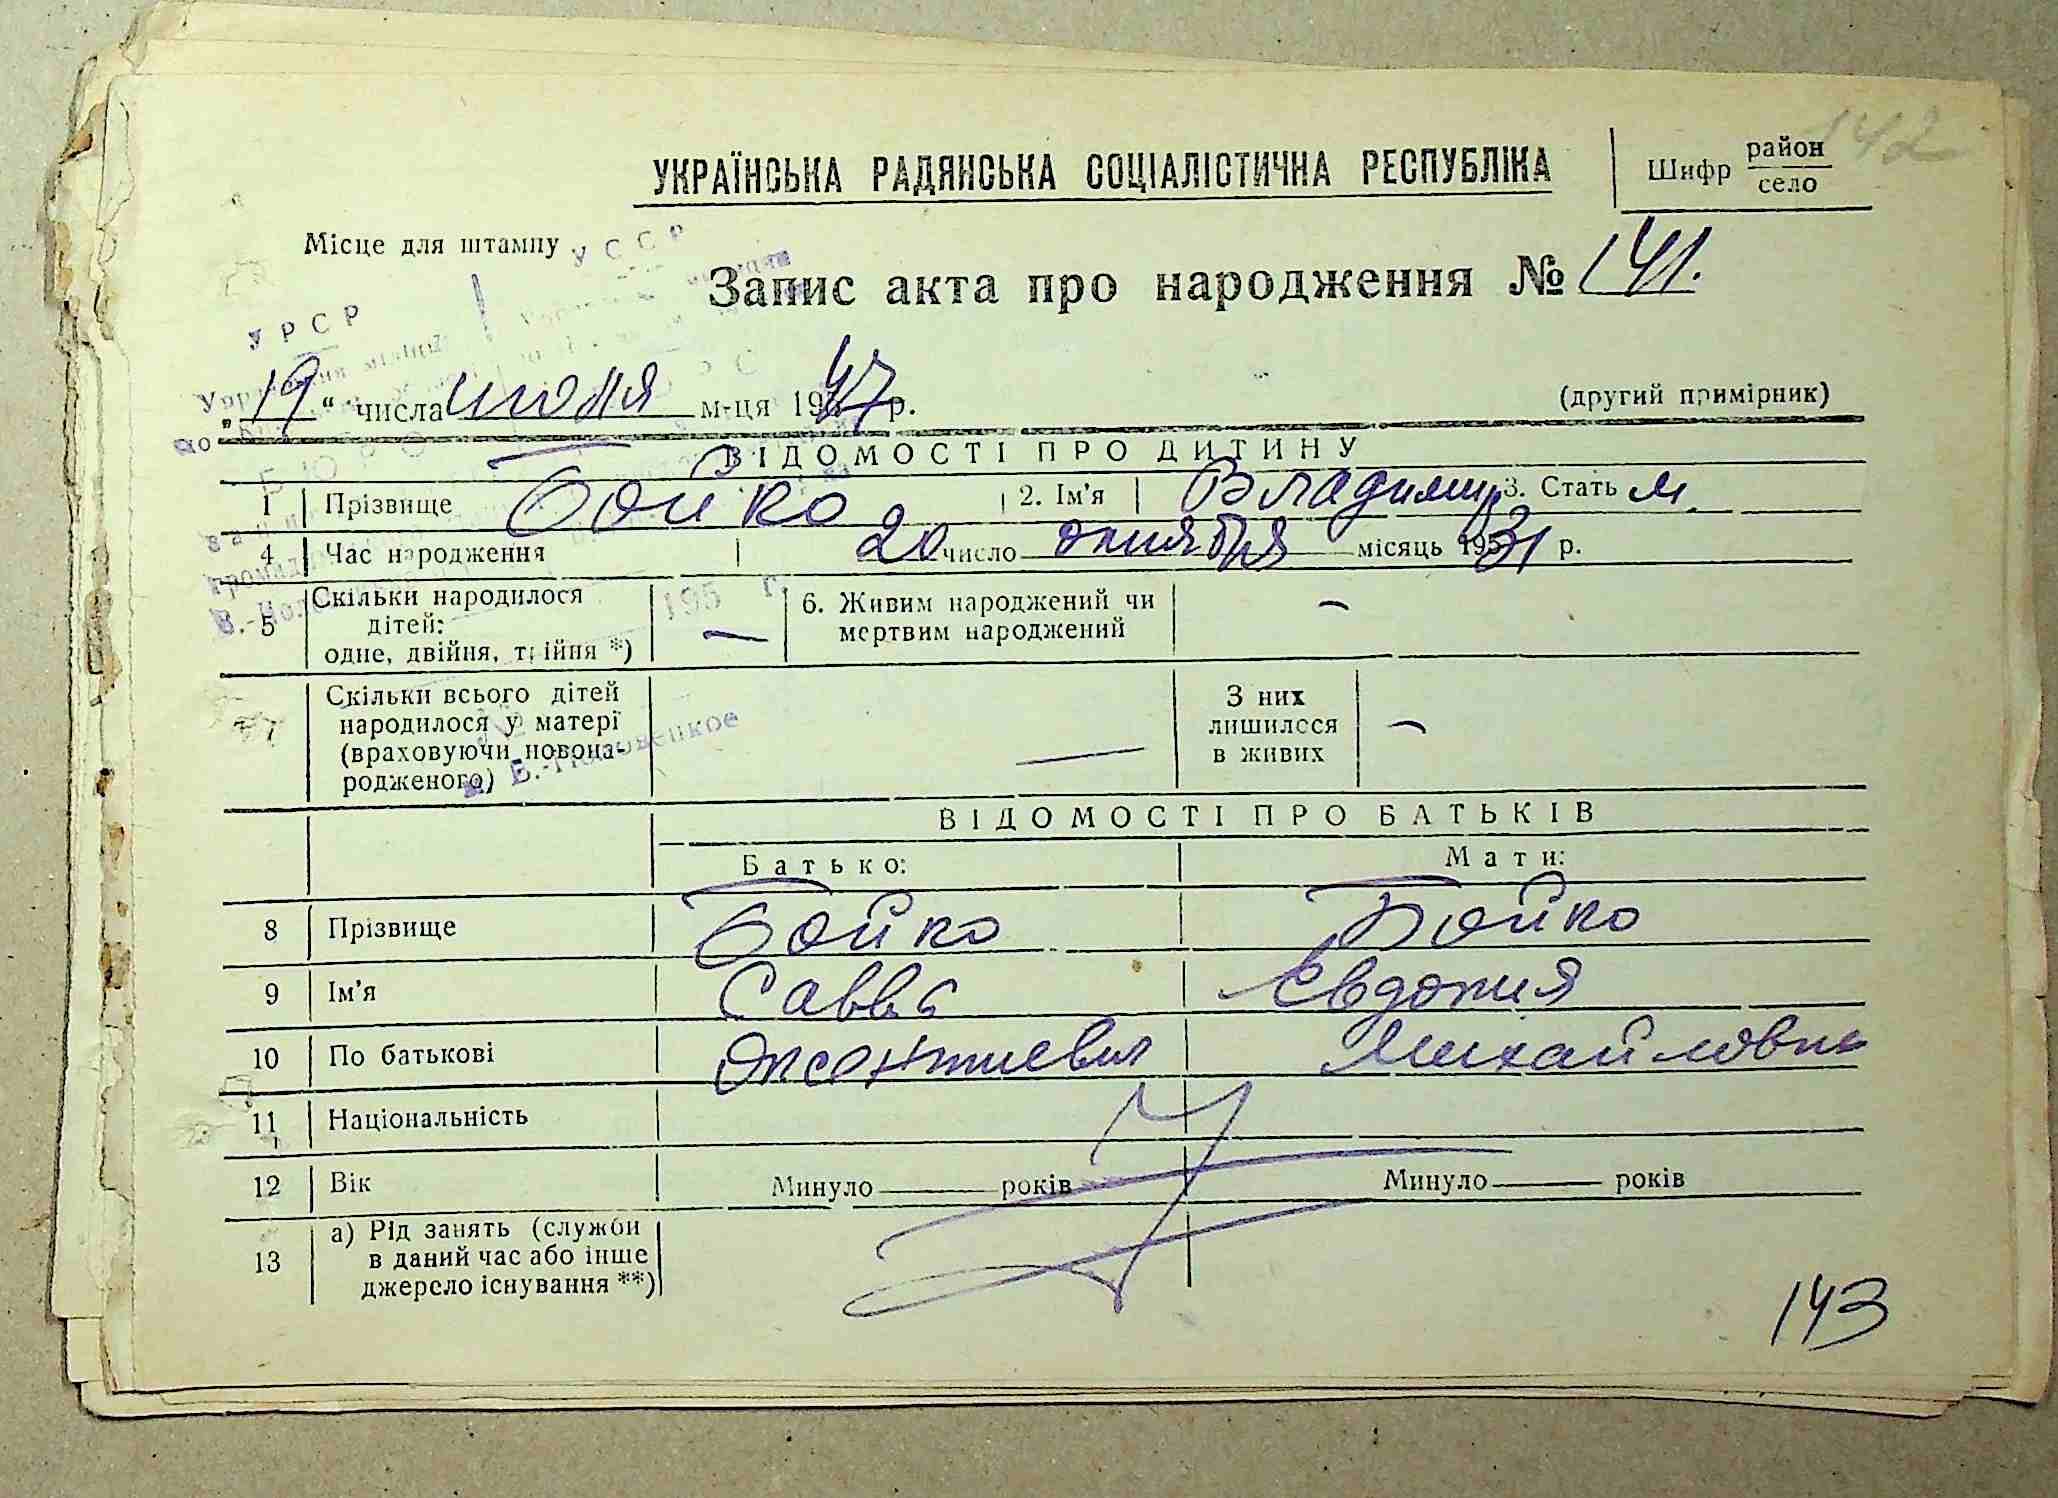 142
УКРАЇНСЬКА РАДЯНСЬКА СОЦІАЛІСТИЧНА РЕСПУБЛІКА
Шифр район село
Місце для штампу
УССР
УРСР
Запис акта про народження № 141.
„19“ числа июля м-ця 1947 р.
(другий примірник)
ВІДОМОСТІ ПРО ДИТИНУ
1 Прізвище Бойко 2. Ім'я Владимир 3. Стать м.
4 Час народження 20 число октября місяць 1931 р.
5 Скільки народилося дітей: одне, двійня, трійня *) — 6. Живим народжений чи мертвим народжений —
195 г.
7 Скільки всього дітей народилося у матері (враховуючи новонародженого) — З них лишилося в живих —
ВІДОМОСТІ ПРО БАТЬКІВ
Батько: Мати:
8 Прізвище Бойко Бойко
9 Ім'я Савва Евдокия
10 По батькові Михайловна
11 Національність
12 Вік Минуло —— років Минуло —— років
13 а) Рід занять (служби в даний час або інше джерело існування **)
143